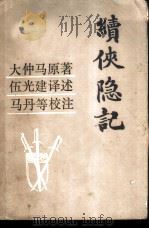 續俠隐記
大仲马原著
伍光建译述
马丹等校注